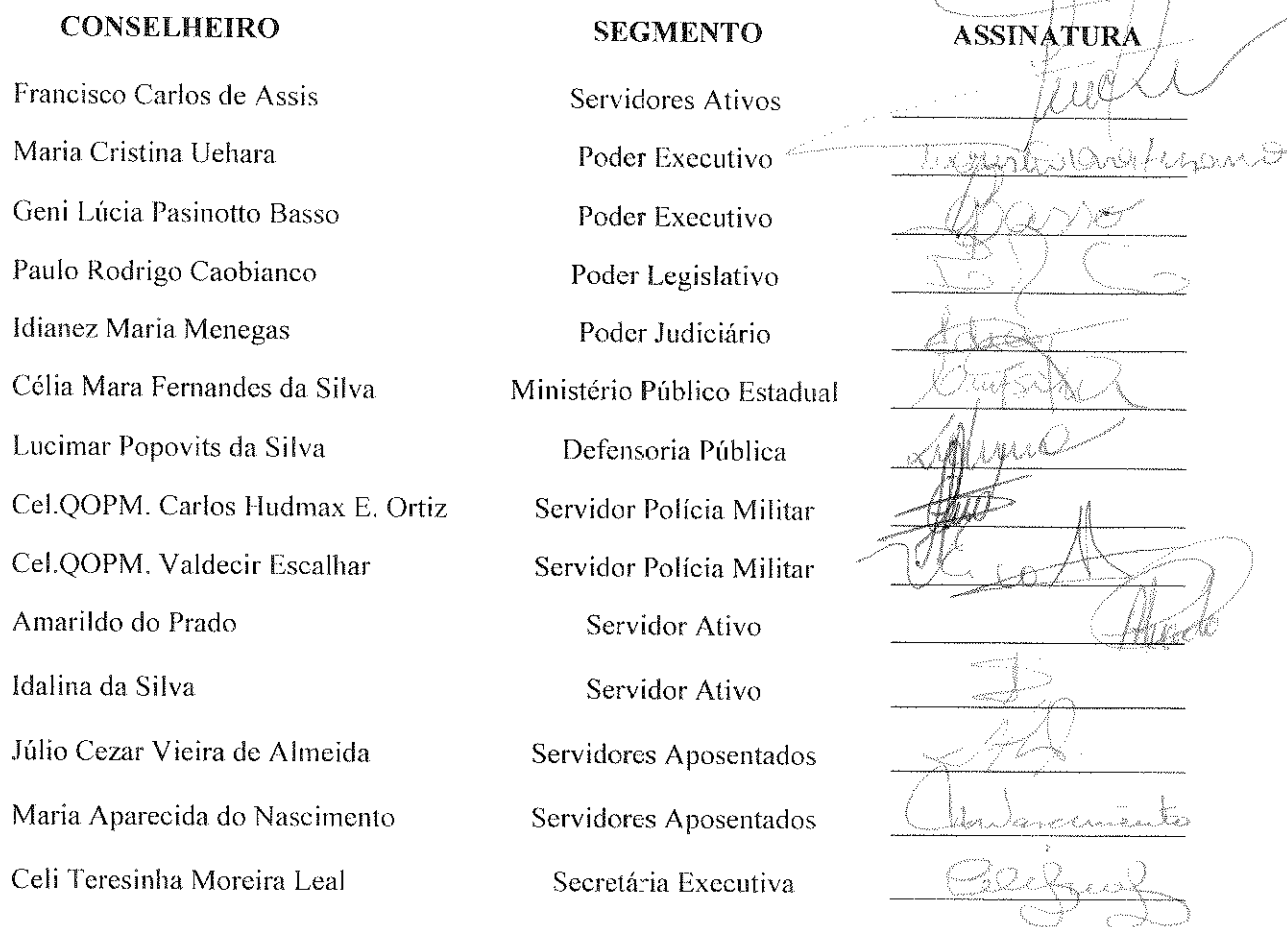 CONSELHEIRO SEGMENTO ASSINATURA
Francisco Carlos de Assis Servidores Ativos
Maria Cristina Uehara Poder Executivo
Geni Lúcia Pasinotto Basso Poder Executivo Basso
Paulo Rodrigo Caobianco Poder Legislativo
Idianez Maria Menegas Poder Judiciário
Célia Mara Fernandes da Silva Ministério Público Estadual
Lucimar Popovits da Silva Defensoria Pública
Cel.QOPM. Carlos Hudmax E. Ortiz Servidor Polícia Militar
Cel.QOPM. Valdecir Escalhar Servidor Polícia Militar
Amarildo do Prado Servidor Ativo
Idalina da Silva Servidor Ativo
Júlio Cezar Vieira de Almeida Servidores Aposentados
Maria Aparecida do Nascimento Servidores Aposentados
Celi Teresinha Moreira Leal Secretária Executiva